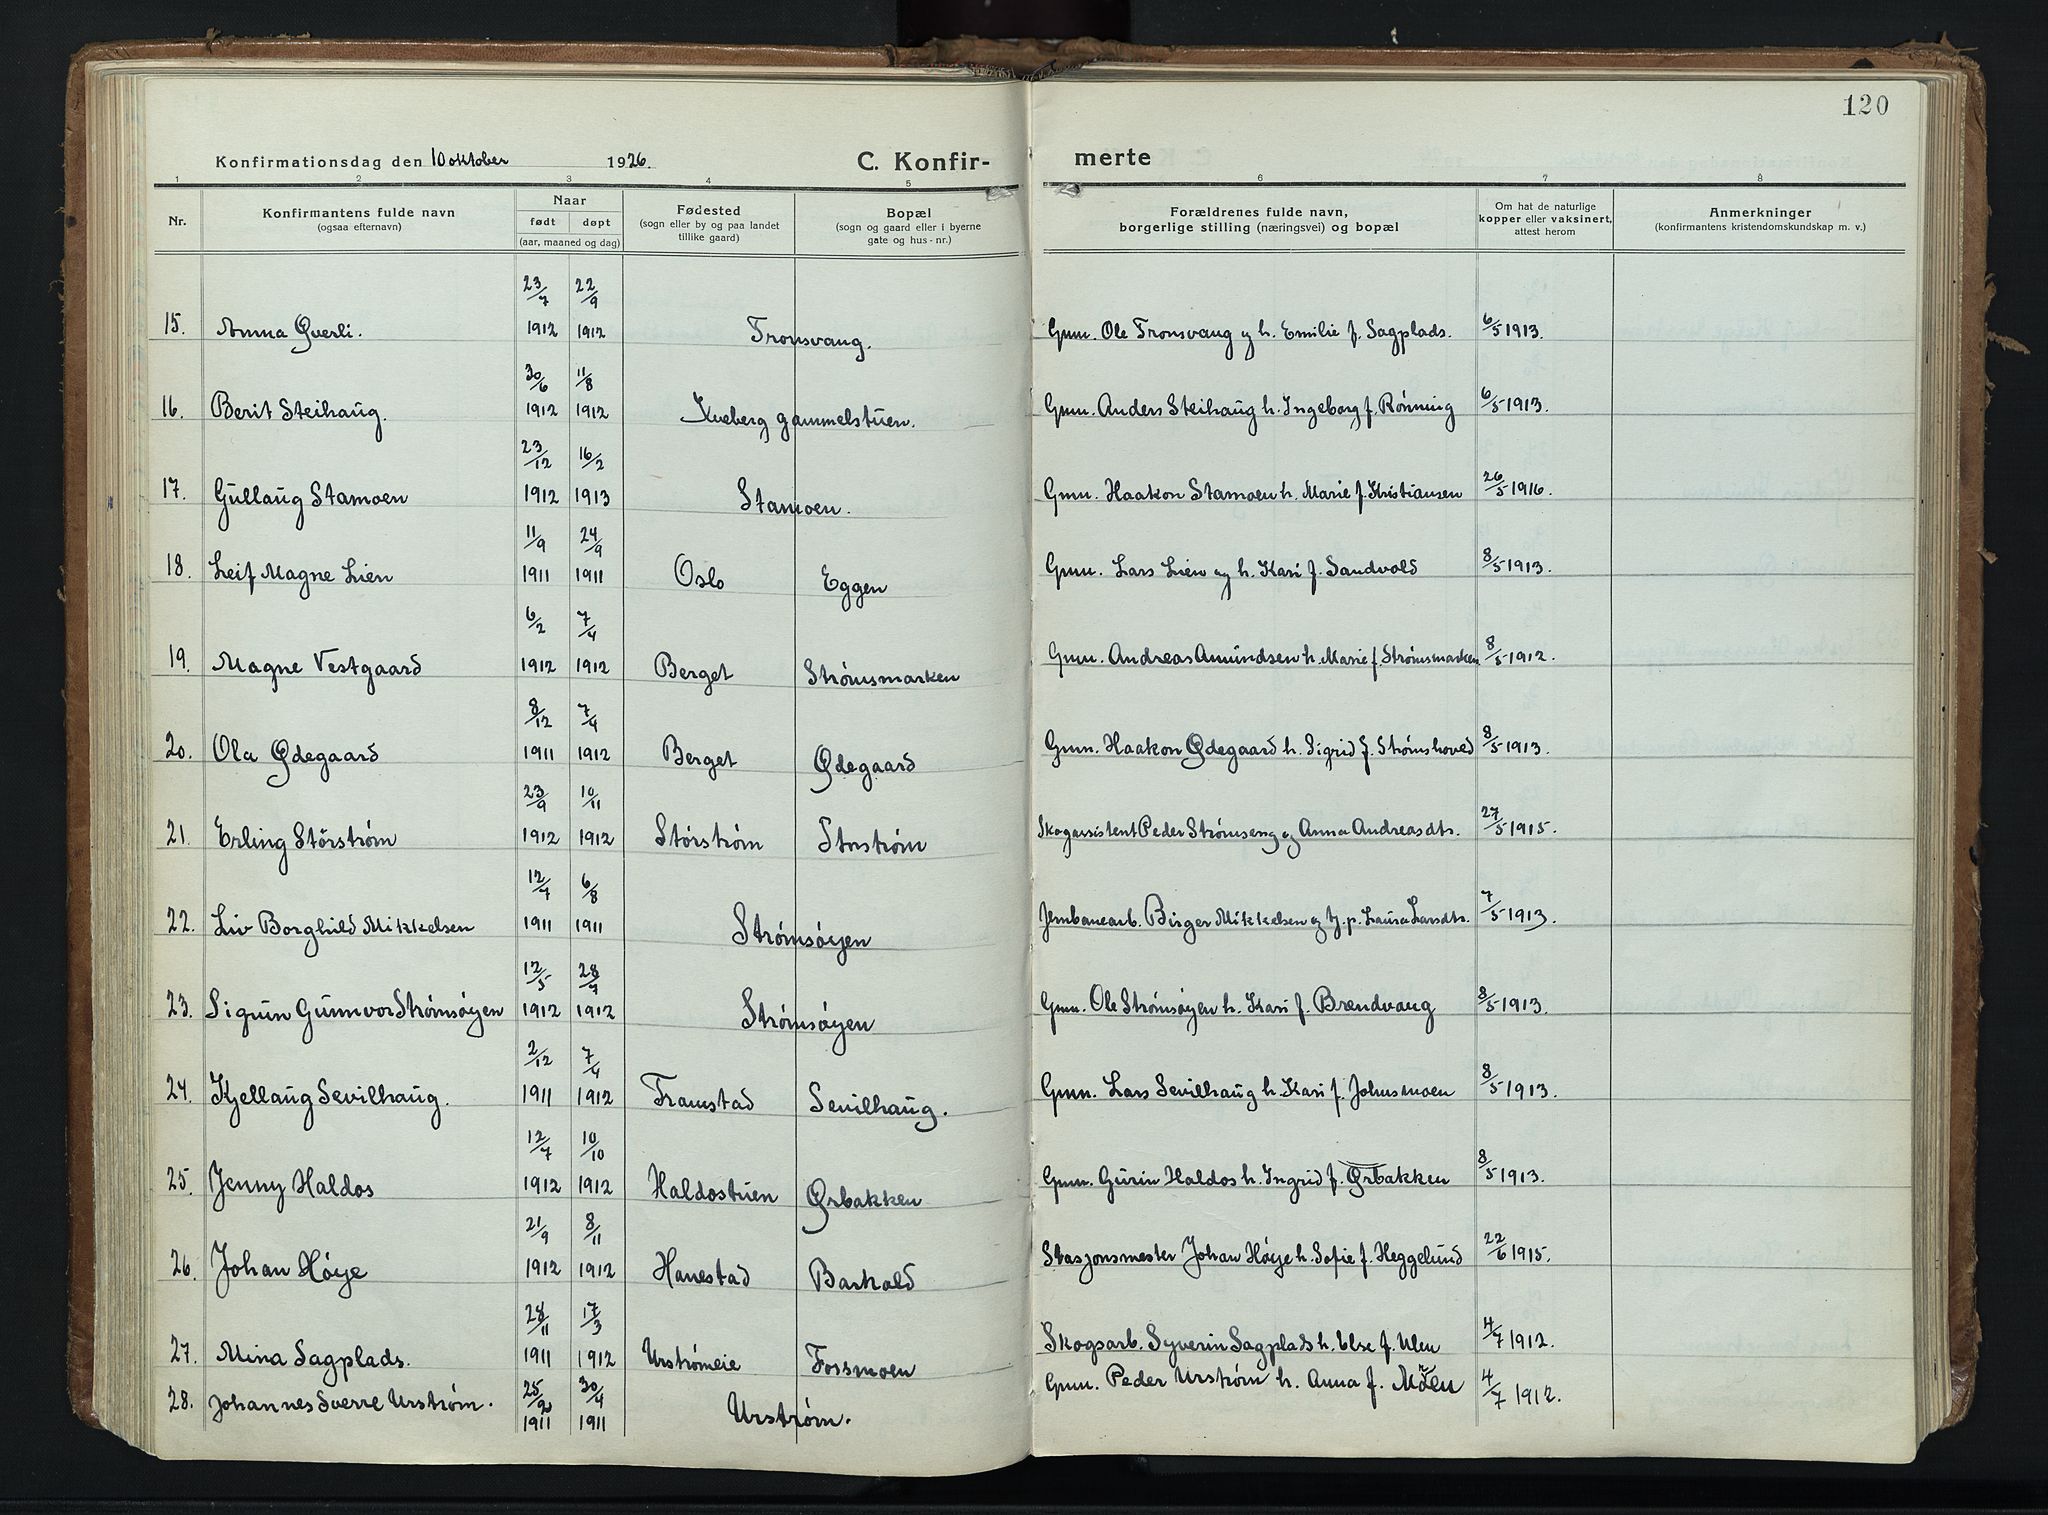 120
Konfirmationsdag den 10 oktober 1926. C. Konfir- merte
1 2 3 4 5 6 7 8
Nr. Konfirmantens fulde navn (ogsaa efternavn) Naar født døpt (aar, maaned og dag) Fødested (sogn eller by og paa landet tillike gaard) Bopæl (sogn og gaard eller i byerne gate og hus-nr.) Forældrenes fulde navn, borgerlige stilling (næringsvei) og bopæl Om hat de naturlige kopper eller vaksinert, attest herom Anmerkninger (konfirmantens kristendomskundskap m. v.)
15. Anna Øverli. 23/7 1912 22/9 1912 Tronsvang. Gmn. Ole Tronsvang og h. Emilie f. Sagplads. 6/5 1913.
16. Berit Steihaug. 30/6 1912 11/8 1912 Kveberg gammelstuen. Gmn. Anders Steihaug h. Ingeborg f. Rönning 6/5 1913.
17. Gullaug Stamoen 23/12 1912 16/2 1913 Stamoen. Gmn. Haakon Stamoen h. Marie f. Kristiansen 26/5 1916.
18. Leif Magne Lien 11/9 1911 24/9 1911 Oslo Eggen Gmn. Lars Lien og h. Kari f. Sandvold 8/5 1913.
19. Magne Vestgaard 6/2 1912 7/4 1912 Berget Strømsmarken Gmn. Andreas Amundsen h. Marie f. Strømsmarken 8/5 1912.
20. Ola Ødegaard 8/12 1911 7/4 1912 Berget Ødegaard Gmn. Haakon Ødegaard h. Sigrid f. Strømshoved 8/5 1913.
21. Erling Storstrøm 23/9 1912 10/11 1912 Storstrøm Storstrøm Skogassistent Peder Strømseng og Anna Andreasdtr. 27/5 1915.
22. Liv Borghild Mikkelsen 12/7 1911 6/8 1911 Strømsøyen Jernbanearb. Birger Mikkelsen og tj.p. Laura Larsdtr. 7/5 1913.
23. Sigrun Gunnvor Strømsøyen 12/5 1912 28/7 1912 Strømsøyen Gmn. Ole Strømsøyen h. Kari f. Brendvang 8/5 1913.
24. Kjellaug Sevilhaug. 2/12 1911 7/4 1912 Framstad Sevilhaug. Gmn. Lars Sevilhaug h. Kari f. Johnsmoen 8/5 1913.
25. Jenny Haldos 12/7 1912 10/10 1912 Haldostuen Ørbakken Gmn. Gurin Haldos h. Ingrid f. Ørbakken 8/5 1913.
26. Johan Höye 21/9 1912 8/11 1912 Hanestad Barkald Stasjonsmester Johan Höye h. Sofie f. Heggelund 22/6 1915.
27. Mina Sagplads. 28/11 1911 17/3 1912 Urströmeie Fossmoen Skogsarb. Syverin Sagplads h. Else f. Ulen 4/7 1912.
28. Johannes Sverre Urstrøm. 25/2 1911 30/4 1911 Urstrøm. Gmn. Peder Urstrøm h. Anna f. Moen 4/7 1912.